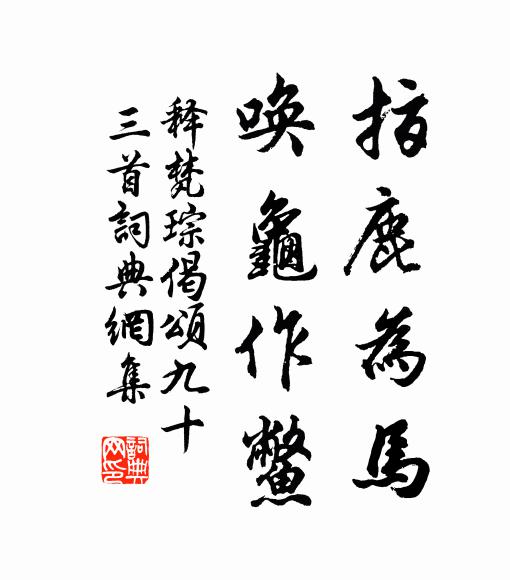 指鹿為馬
喚龜作鱉
释梵琮偈頌九十
三首詞典網集
詞典
网印